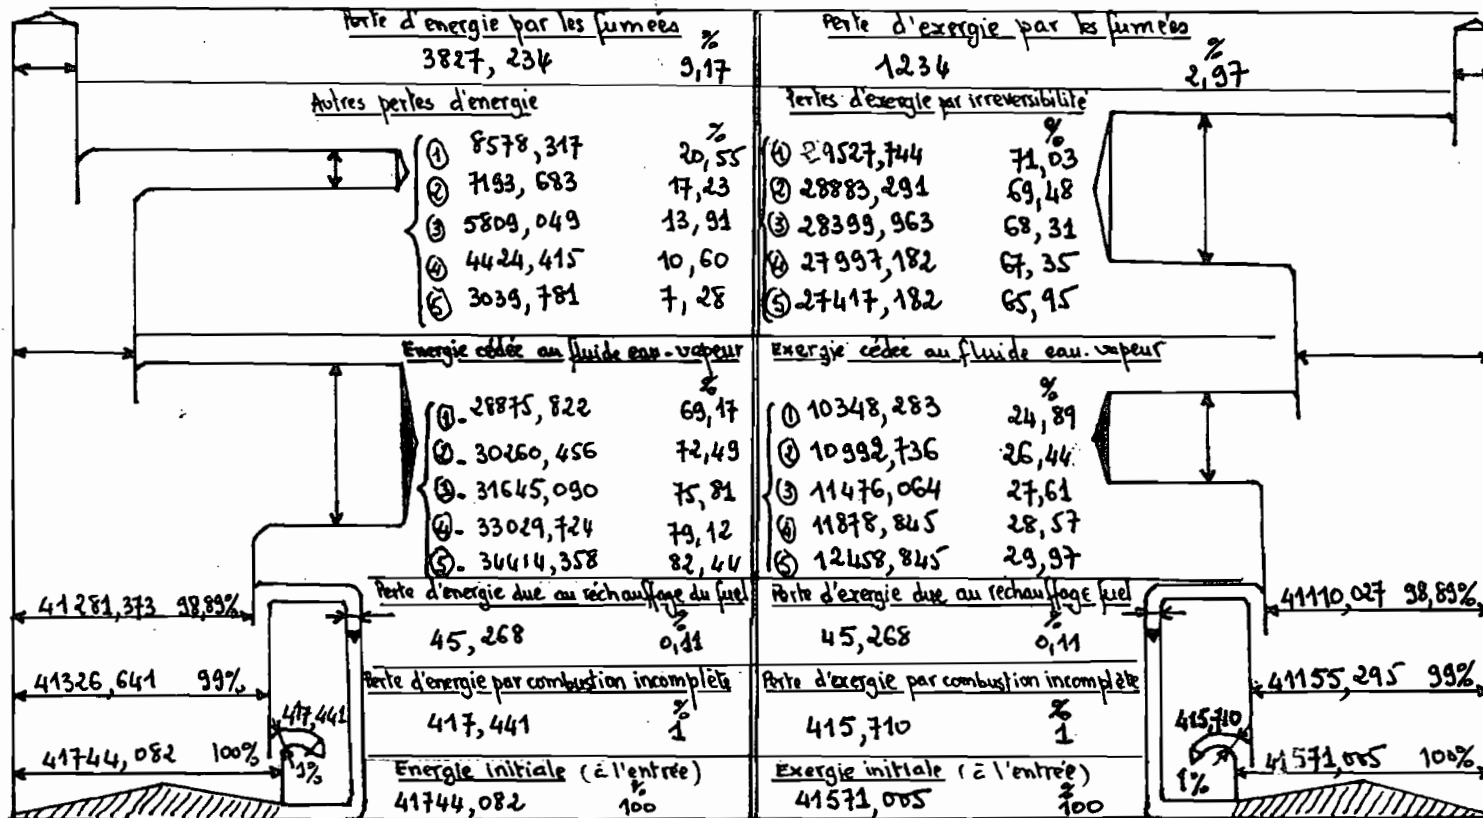 Perte d'energie par les fumées
%
3827, 234 9,17
Autres pertes d'energie
%
① 8578,317 20,55
② 7193, 683 17,23
③ 5809, 049 13,91
④ 4424,415 10,60
⑤ 3039,781 7,28
Energie cédée au fluide eau-vapeur
%
①- 28875,822 69,17
②- 30260,456 72,49
③- 31645,090 75,81
④- 33029,724 79,12
⑤- 34414,358 82,44
Perte d'energie due au réchauffage du fuel
%
45,268 0,11
Perte d'energie par combustion incomplète
%
417,441 1
Energie initiale (à l'entrée)
%
41744,082 100
41281,373 98,89%
41326,641 99%
417,441
1%
41744,082 100%
Perte d'exergie par les fumées
%
1234 2,97
Pertes d'exergie par irreversibilité
%
① 29527,744 71,03
② 28883,291 69,48
③ 28399,963 68,31
④ 27997,182 67,35
⑤ 27417,182 65,95
Exergie cédée au fluide eau-vapeur
%
① 10348,283 24,89
② 10992,736 26,44
③ 11476,064 27,61
④ 11878,845 28,57
⑤ 12458,845 29,97
Perte d'exergie due au rechauffage fuel
%
45,268 0,11
Perte d'exergie par combustion incomplète
%
415,710 1
Exergie initiale (à l'entrée)
%
41571,005 100
41110,027 98,89%
41155,295 99%
415,710
1%
41571,005 100%